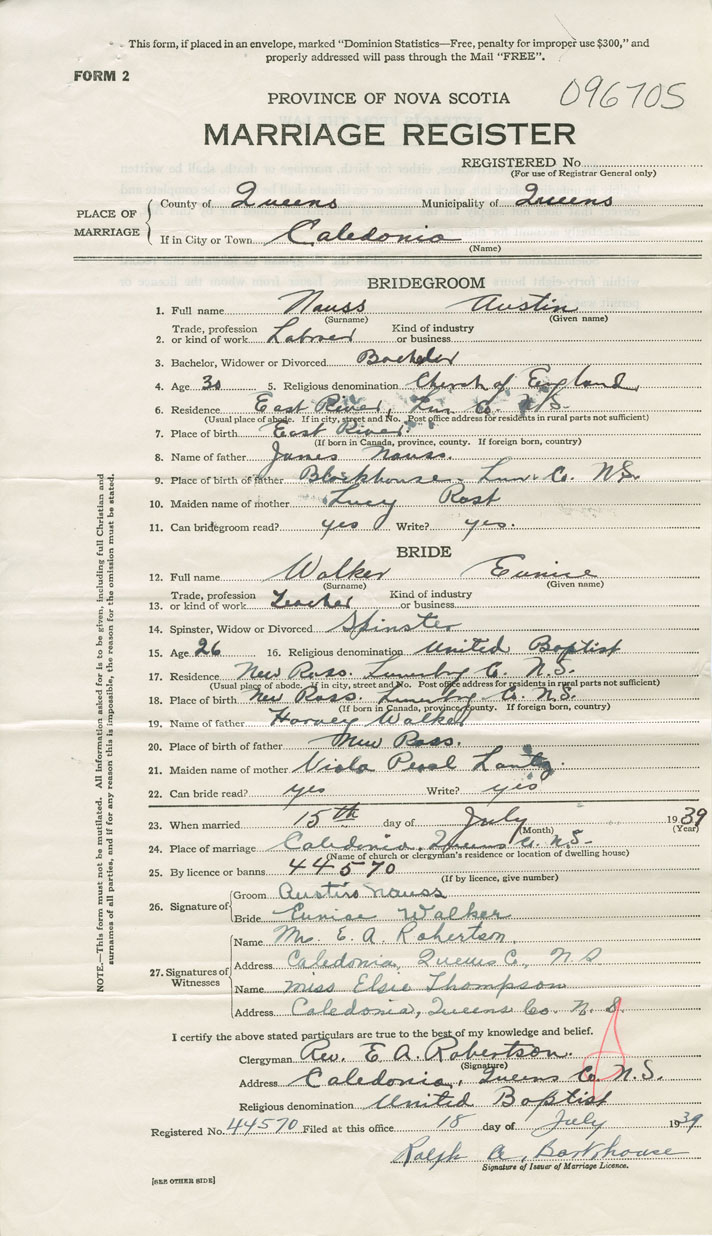 This form, if placed in an envelope, marked "Dominion Statistics—Free, penalty for improper use $300," and
properly addressed will pass through the Mail "FREE".
FORM 2
096705
PROVINCE OF NOVA SCOTIA
MARRIAGE REGISTER
REGISTERED No.
(For use of Registrar General only)
PLACE OF MARRIAGE
County of Queens Municipality of Queens
If in City or Town Caledonia
(Name)
BRIDEGROOM
1. Full name Nauss Austin
(Surname) (Given name)
2. Trade, profession or kind of work Laborer Kind of industry or business
3. Bachelor, Widower or Divorced Bachelor
4. Age 30 5. Religious denomination Church of England
6. Residence East River, Lun Co. N.S.
(Usual place of abode. If in city, street and No. Post office address for residents in rural parts not sufficient)
7. Place of birth East River
(If born in Canada, province, county. If foreign born, country)
8. Name of father James Nauss.
9. Place of birth of father Blockhouse Lun. Co. N.S.
10. Maiden name of mother Lucy Rost
11. Can bridegroom read? yes Write? yes.
BRIDE
12. Full name Walker Eunice
(Surname) (Given name)
13. Trade, profession or kind of work Teacher Kind of industry or business
14. Spinster, Widow or Divorced Spinster
15. Age 26 16. Religious denomination United Baptist
17. Residence New Ross. Lunenbrg Co. N.S.
(Usual place of abode. If in city, street and No. Post office address for residents in rural parts not sufficient)
18. Place of birth New Ross. Lunenbrg Co. N.S.
(If born in Canada, province, county. If foreign born, country)
19. Name of father Harvey Walker
20. Place of birth of father New Ross.
21. Maiden name of mother Viola Pearl Lantz
22. Can bride read? yes Write? yes
23. When married 15th day of July 1939
(Month) (Year)
24. Place of marriage Caledonia, Queens Co. N.S.
(Name of church or clergyman's residence or location of dwelling house)
25. By licence or banns 44570
(If by licence, give number)
26. Signature of
Groom Austin Nauss
Bride Eunise Walker
27. Signatures of Witnesses
Name Mrs. E. A. Robertson.
Address Caledonia, Queens Co., N S
Name Miss Elsie Thompson
Address Caledonia, Queens Co. N. S.
I certify the above stated particulars are true to the best of my knowledge and belief.
Clergyman Rev. E. A. Robertson.
(Signature)
Address Caledonia, Queens Co. N.S.
Religious denomination United Baptist
Registered No. 44570 Filed at this office 18 day of July 1939
Ralph A. Barkhouse
Signature of Issuer of Marriage Licence.
[SEE OTHER SIDE]
NOTE.—This form must not be mutilated. All information asked for is to be given, including full Christian and
surnames of all parties, and if for any reason this is impossible, the reason for the omission must be stated.